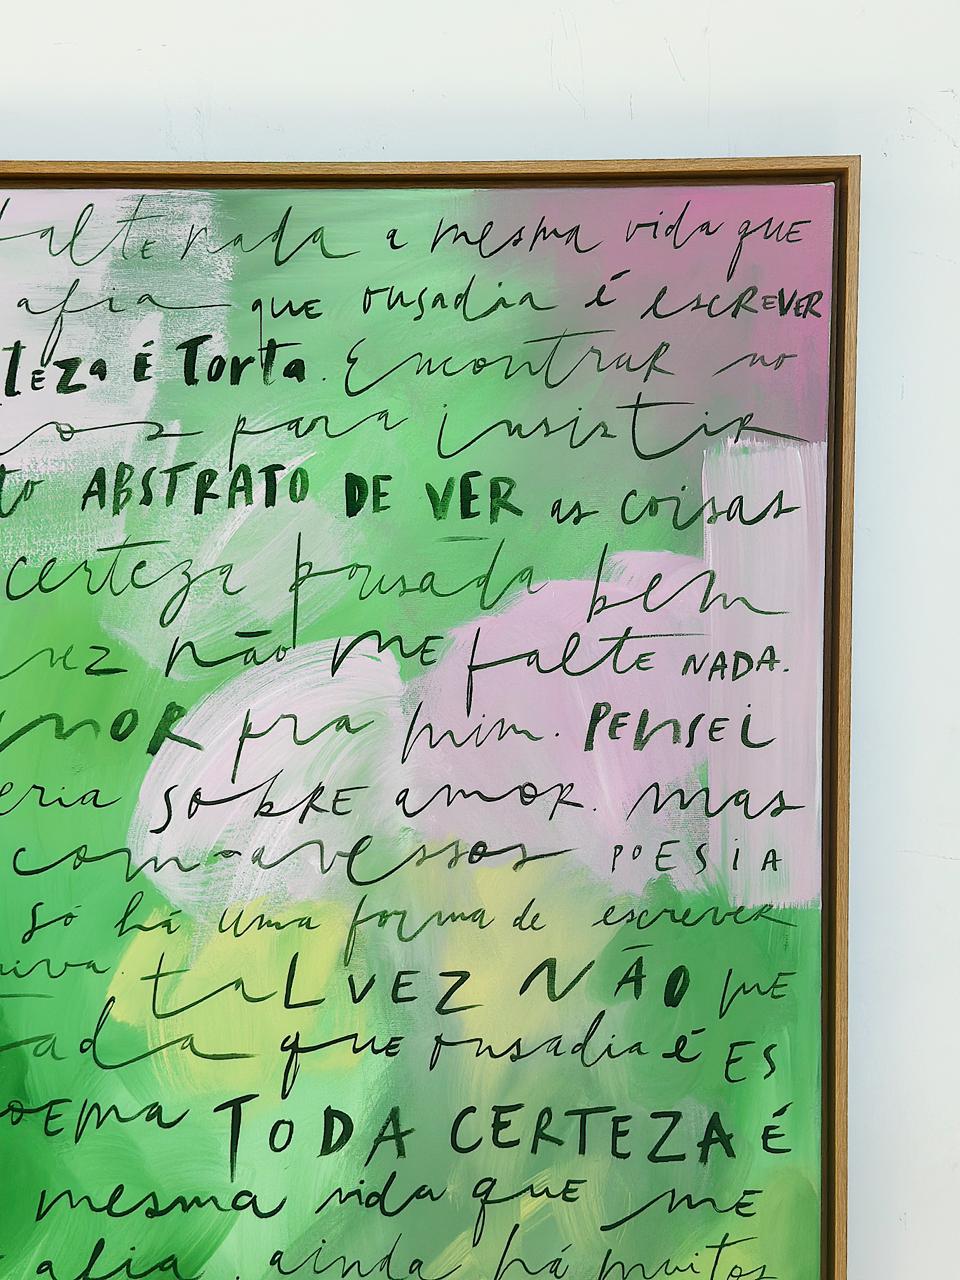 falte nada a mesma vida que
afia que ousadia é escrever
teza é Torta. Encontrar no
para insistir
to ABSTRATO DE VER as coisas
certeza pousada bem
vez não me falte NADA.
amor pra mim. PENSEI
eria sobre amor. mas
com avessos POESIA
só há uma forma de escrever
viva. talvez NÃO me
ada que ousadia é ES
oema TODA CERTEZA É
mesma vida que me
afia. ainda há muitos